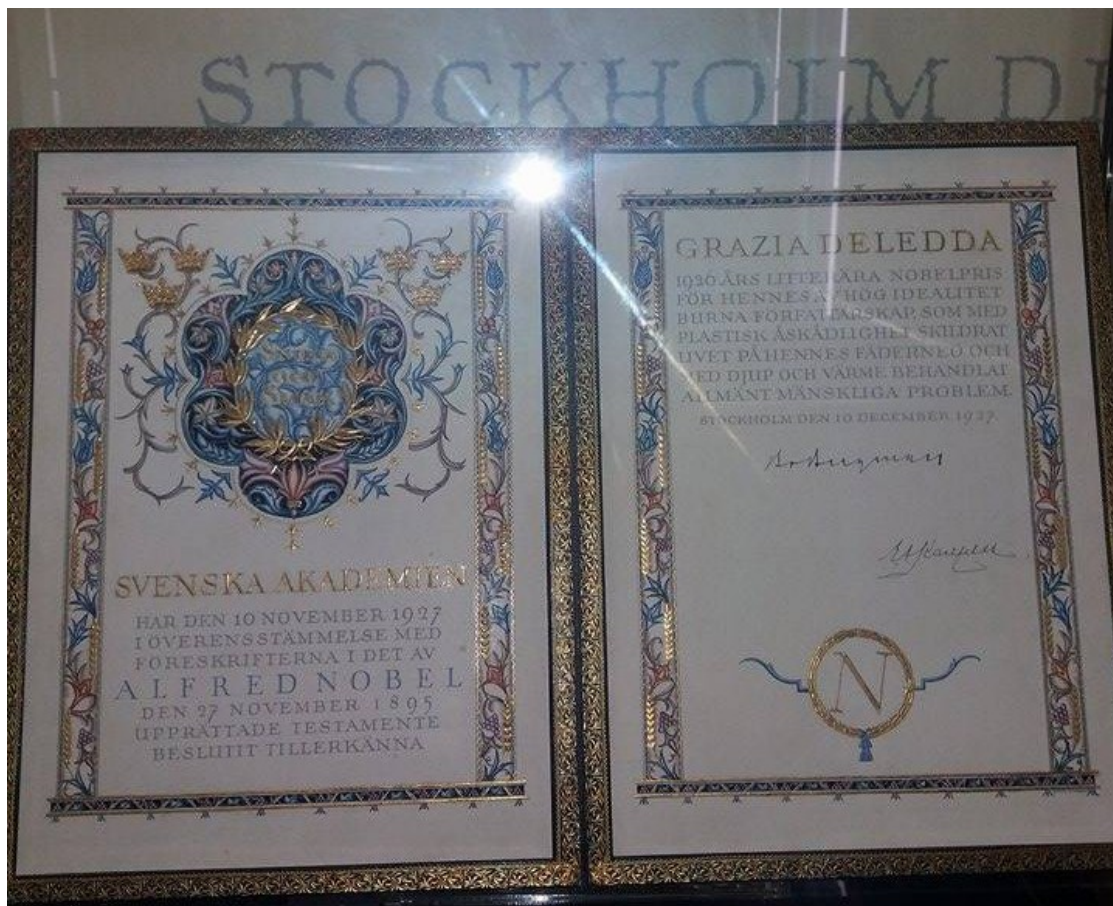 STOCKHOLM
SVENSKA AKADEMIEN
HAR DEN 10 NOVEMBER 1927
I ÖVERENSSTÄMMELSE MED
FÖRESKRIFTERNA I DET AV
ALFRED NOBEL
DEN 27 NOVEMBER 1895
UPPRÄTTADE TESTAMENTE
BESLUTIT TILLERKÄNNA
GRAZIA DELEDDA
1926 ÅRS LITTERÄRA NOBELPRIS
FÖR HENNES AV HÖG IDEALITET
BURNA FÖRFATTARSKAP, SOM MED
PLASTISK ÅSKÅDLIGHET SKILDRAT
LIVET PÅ HENNES FÄDERNEÖ OCH
MED DJUP OCH VÄRME BEHANDLAT
ALLMÄNT MÄNSKLIGA PROBLEM.
STOCKHOLM DEN 10 DECEMBER 1927.
N